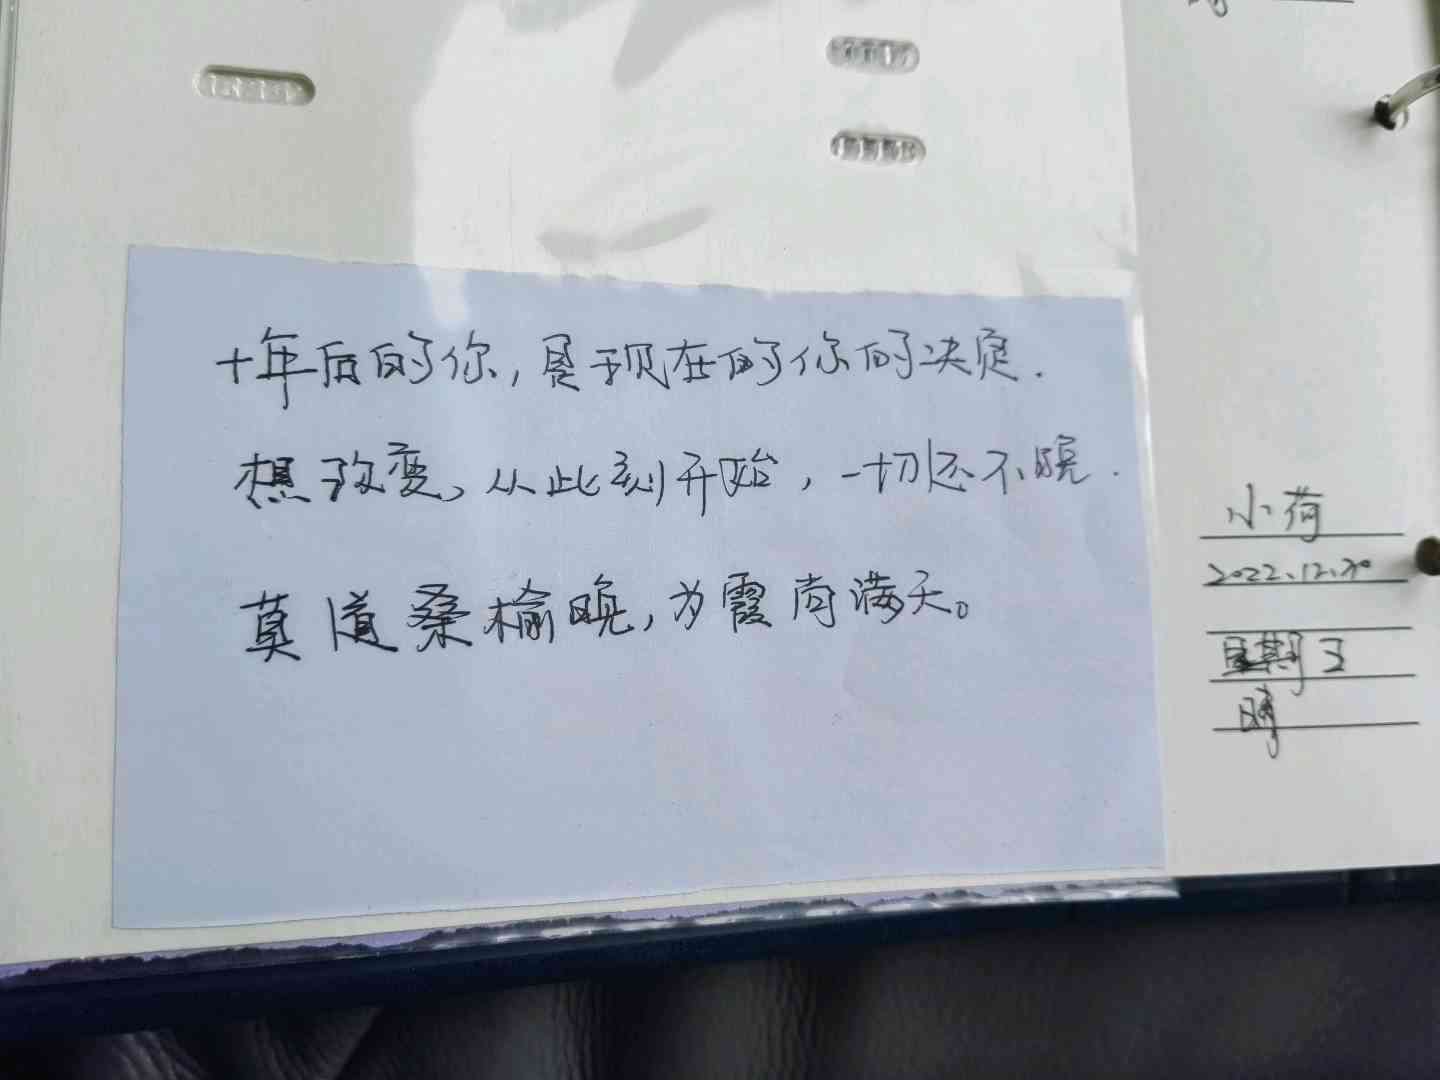 十年后的你，是现在的你的决定.
想改变、从此刻开始，一切还不晚.
莫道桑榆晚，为霞尚满天。
小荷
2022.12.30
星期五
晴